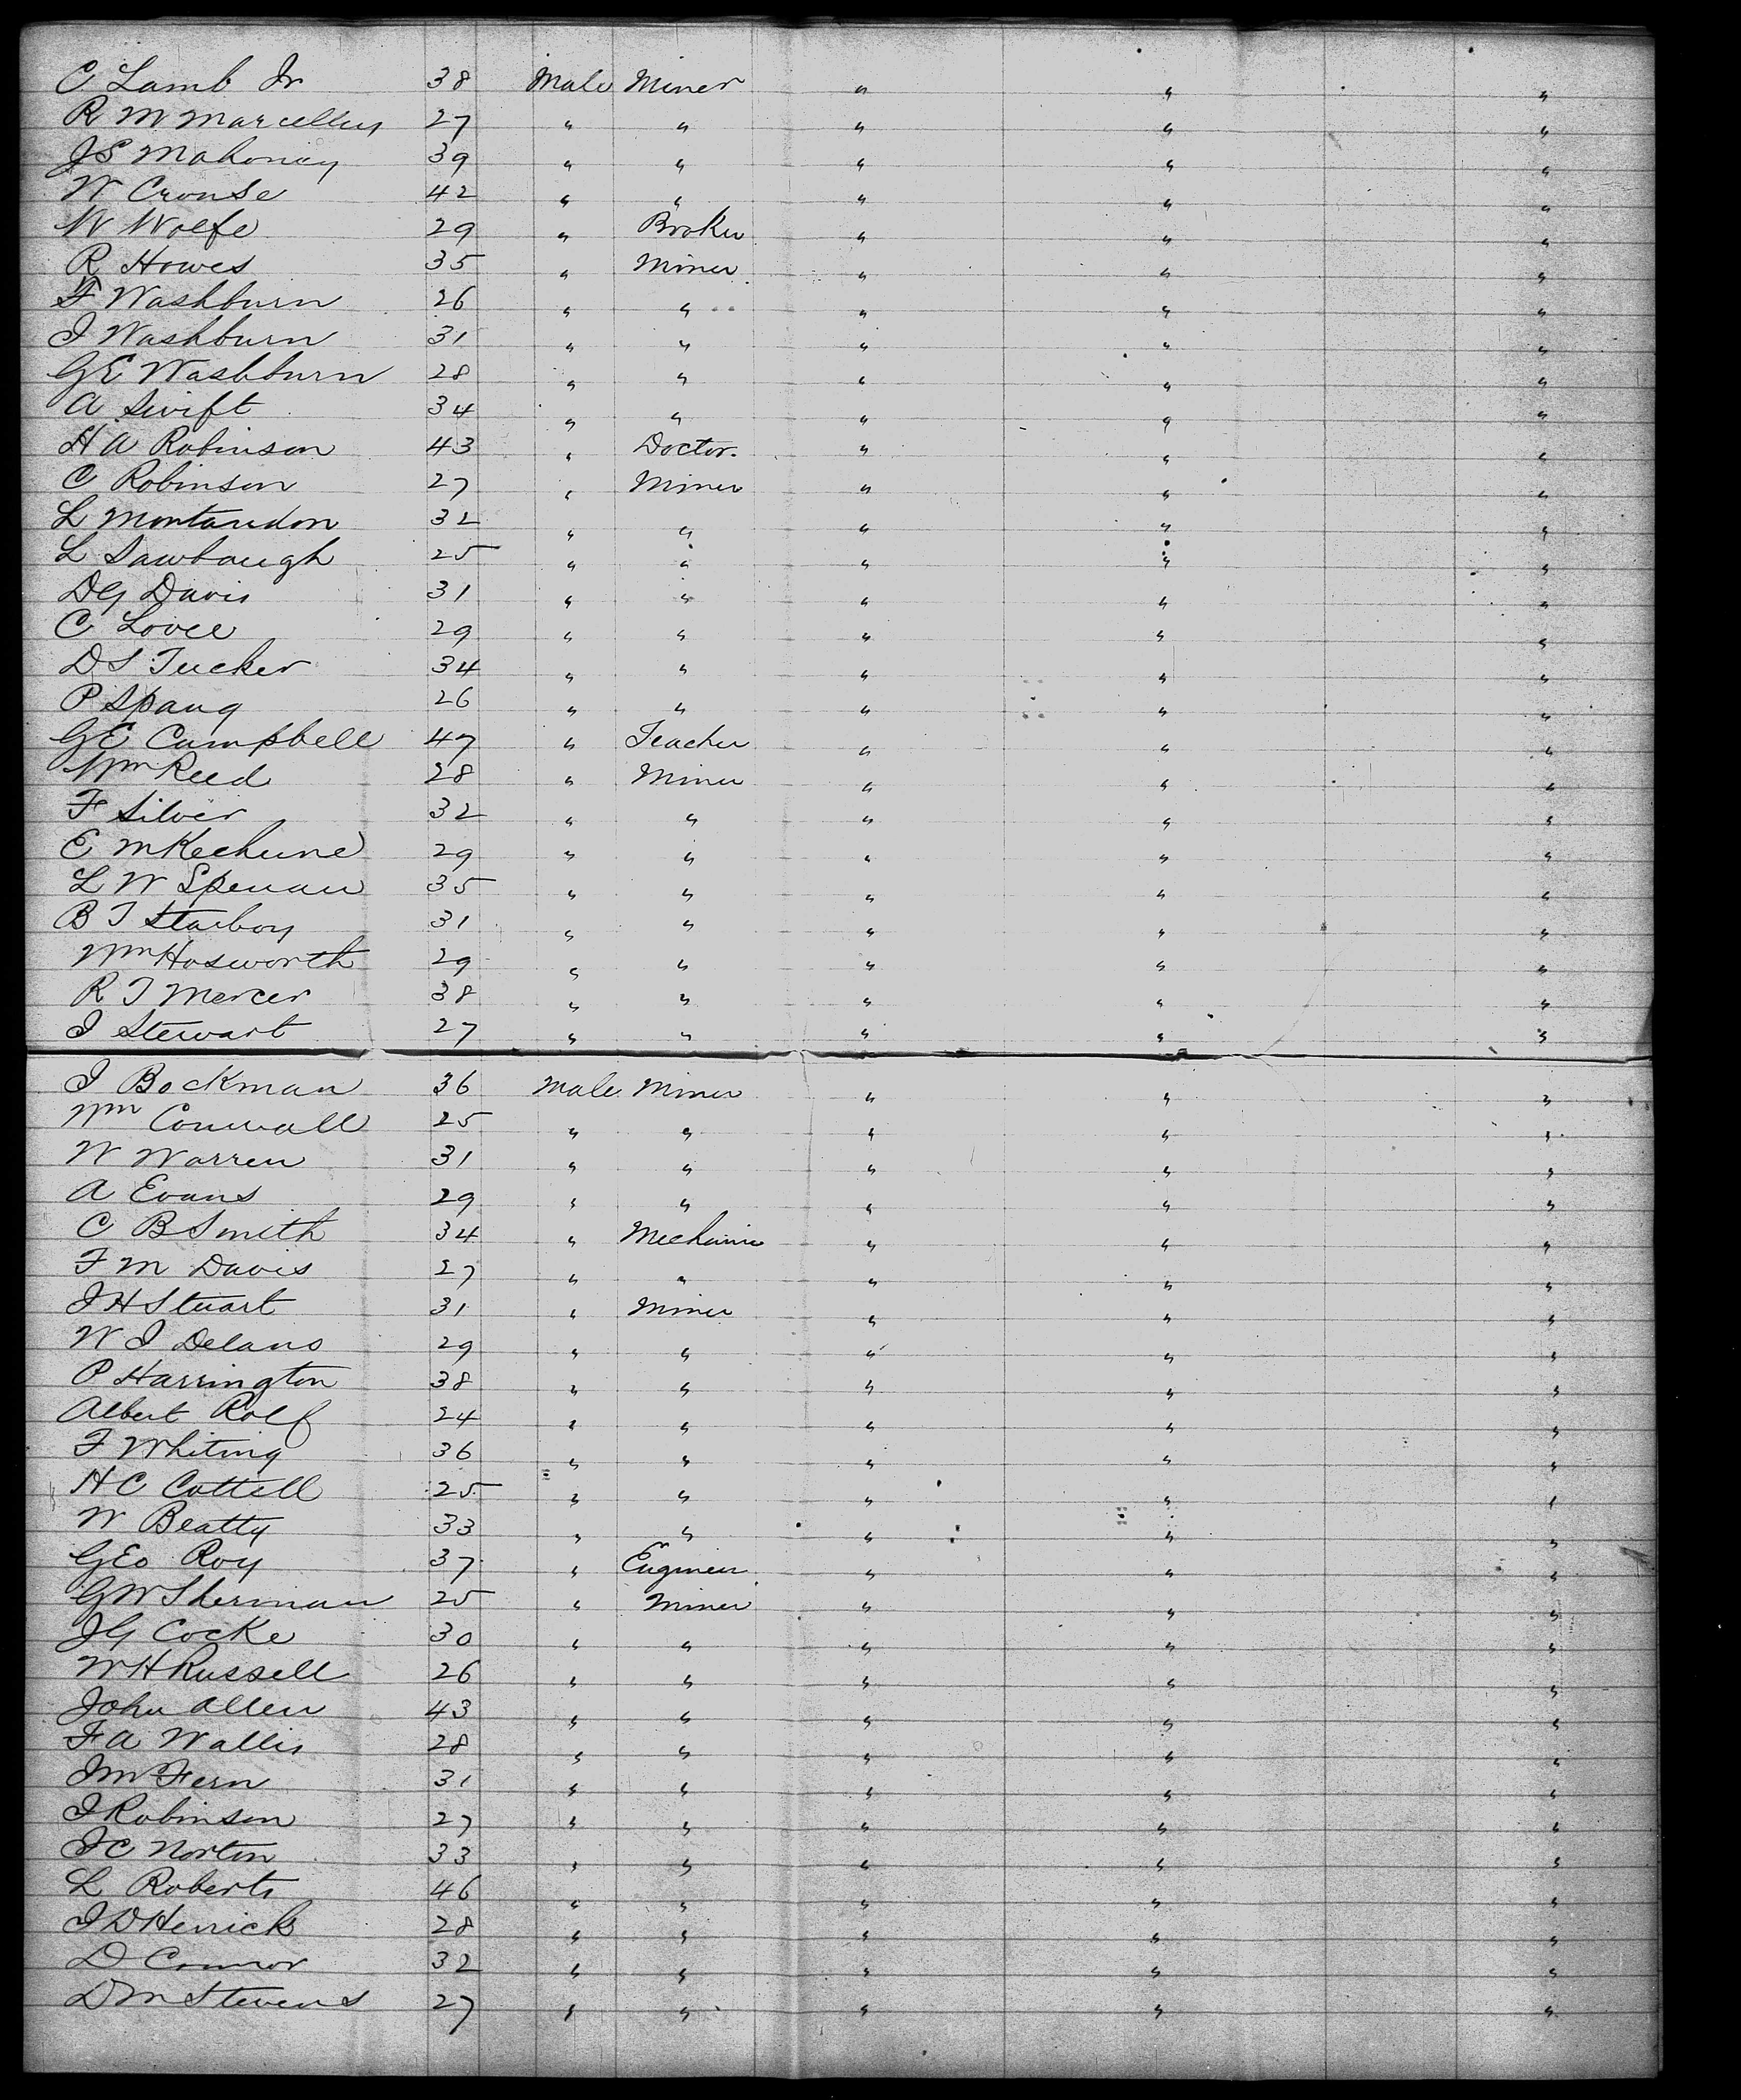 C Lamb Jr 38 Male Miner " " "
R M Marcellus 27 " " " " "
J S Mahoney 39 " " " " "
W Crouse 42 " " " " "
W Wolfe 29 " Broker " " "
R Howes 35 " Miner " " "
F Washburn 26 " " " " "
J Washburn 31 " " " " "
G E Washburn 28 " " " " "
A Swift 34 " " " " "
H A Robinson 43 " Doctor. " " "
C Robinson 27 " Miner " " "
L Montandon 32 " " " " "
L Sawbaugh 25 " " " " "
D G Davis 31 " " " " "
C Lovee 29 " " " " "
D S Tucker 34 " " " " "
P Spang 26 " " " " "
G E Campbell 47 " Teacher " " "
Wm Reed 28 " Miner " " "
F Silver 32 " " " " "
E McKechune 29 " " " " "
L W Spenau 35 " " " " "
B T Starboy 31 " " " " "
Wm Hosworth 29 " " " " "
R T Mercer 38 " " " " "
J Stewart 27 " " " " "
J Bockman 36 Male Miner " " "
Wm Conwall 25 " " " " "
W Warren 31 " " " " "
A Evans 29 " " " " "
C B Smith 34 " Mechanic " " "
F M Davis 27 " " " " "
J H Stuart 31 " Miner " " "
W J Delano 29 " " " " "
P Harrington 38 " " " " "
Albert Rolf 24 " " " " "
F Whiting 36 " " " " "
H C Cottell 25 " " " " "
W Beatty 33 " " " " "
Geo Roy 37 " Engineer " " "
G W Sherman 25 " Miner " " "
J G Cocke 30 " " " " "
W H Russell 26 " " " " "
John Allen 43 " " " " "
F A Wallis 28 " " " " "
J M Fern 31 " " " " "
J Robinson 27 " " " " "
J C Norton 33 " " " " "
L Roberts 46 " " " " "
J D Herrick 28 " " " " "
D Connor 32 " " " " "
D M Stevens 27 " " " " "